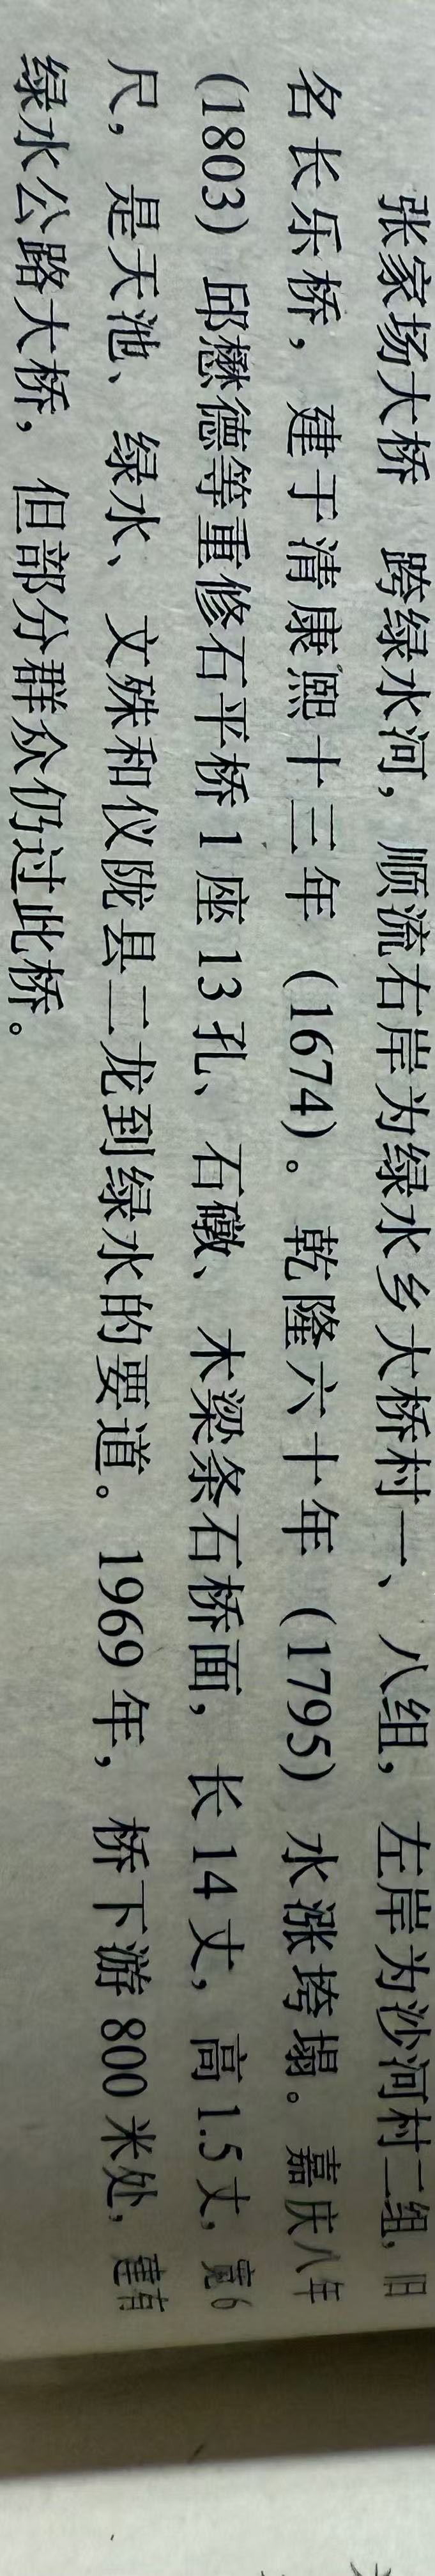 张家场大桥　跨绿水河，顺流右岸为绿水乡大桥村一、八组，左岸为沙河村二组，旧
名长乐桥，建于清康熙十三年（1674）。乾隆六十年（1795）水涨垮塌。嘉庆八年
（1803）邱懋德等重修石平桥1座13孔、石礅、木梁条石桥面，长14丈，高1.5丈，宽6
尺，是天池、绿水、文殊和仪陇县二龙到绿水的要道。1969年，桥下游800米处，建有
绿水公路大桥，但部分群众仍过此桥。